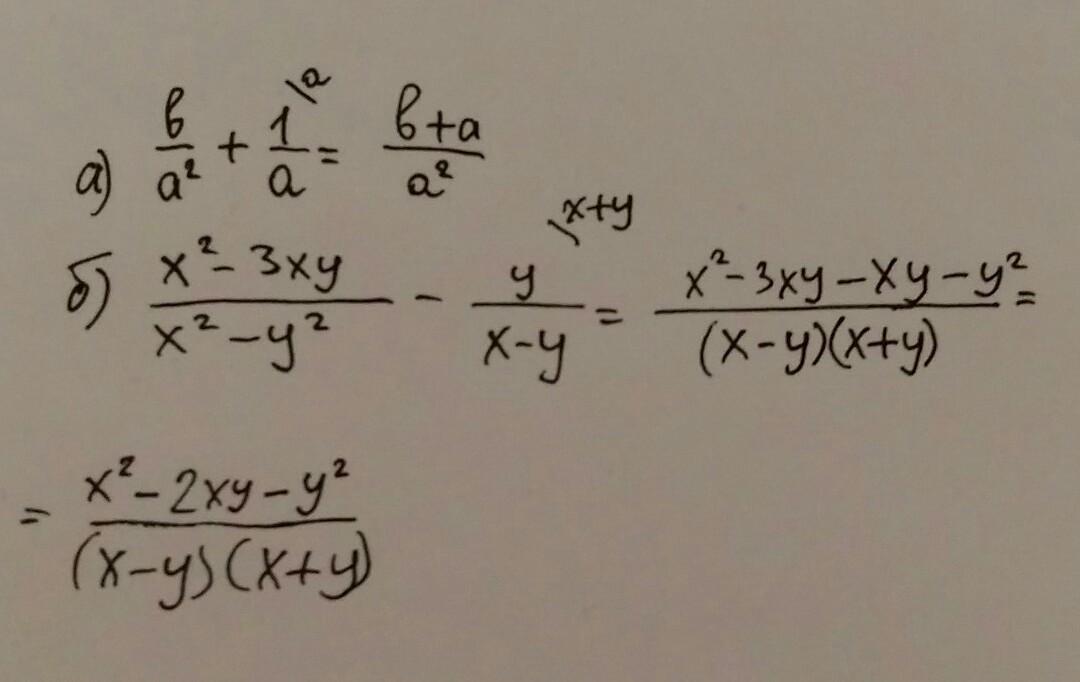 а) в/a² + 1\a/a = в+a/a²
б) x²-3xy/x²-y² - y\x+y/x-y = x²-3xy-xy-y²/(x-y)(x+y) =
= x²-2xy-y²/(x-y)(x+y)